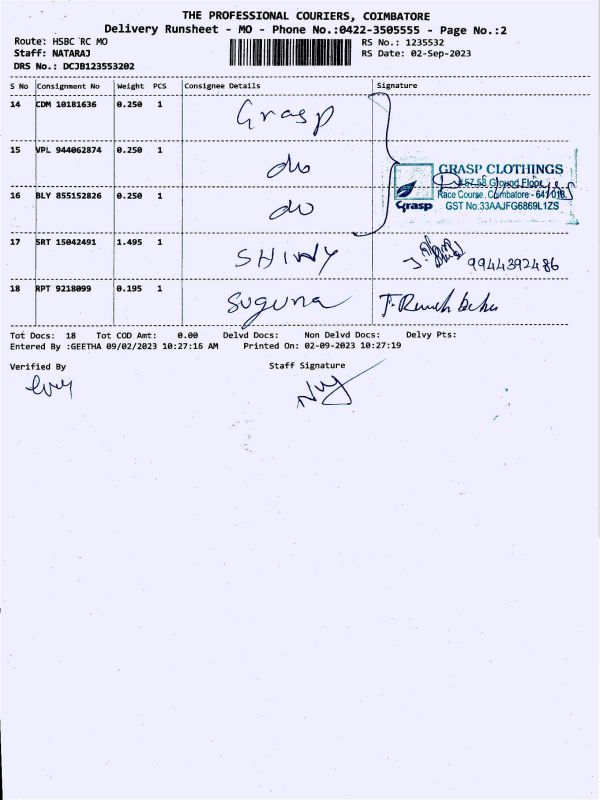 THE PROFESSIONAL COURIERS, COIMBATORE
Delivery Runsheet - MO - Phone No.:0422-3505555 - Page No.:2
Route: HSBC RC MO RS No.: 1235532
Staff: NATARAJ RS Date: 02-Sep-2023
DRS No.: DCJB123553202
S No Consignment No Weight PCS Consignee Details Signature
14 CDM 10181636 0.250 1 Grasp
15 VPL 944062874 0.250 1 do
GRASP CLOTHINGS
Ground Floor
Race Course, Coimbatore - 641018
Grasp GST No:33AAJFG6869L1ZS
16 BLY 855152826 0.250 1 do
17 SRT 15042491 1.495 1 SHINY 9944392486
18 RPT 9218099 0.195 1 Suguna
Tot Docs: 18 Tot COD Amt: 0.00 Delvd Docs: Non Delvd Docs: Delvy Pts:
Entered By :GEETHA 09/02/2023 10:27:16 AM Printed On: 02-09-2023 10:27:19
Verified By Staff Signature